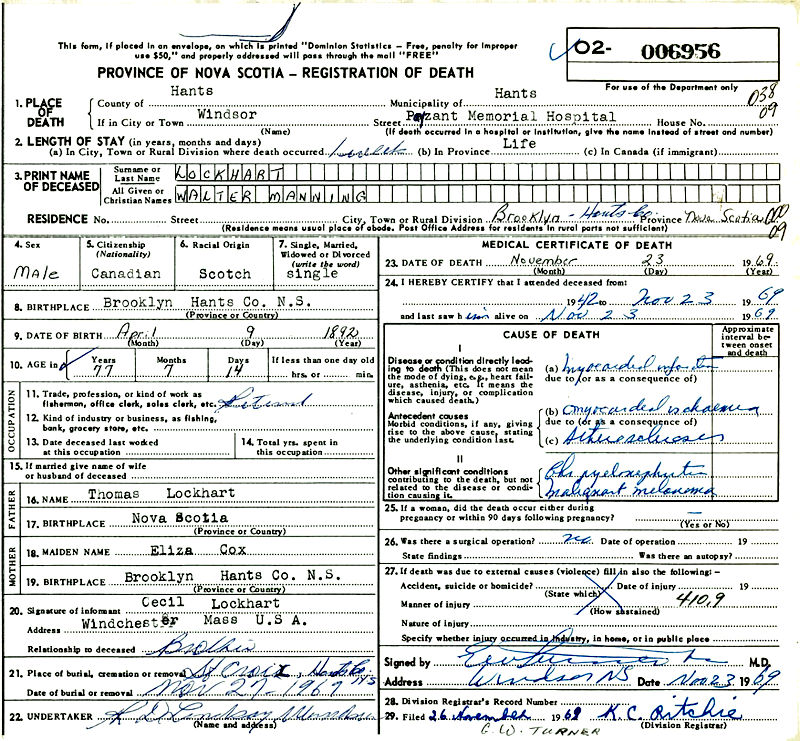 This form, if placed in an envelope, on which is printed "Dominion Statistics – Free, penalty for improper
use $50," and properly addressed will pass through the mail "FREE"
02- 006956
PROVINCE OF NOVA SCOTIA – REGISTRATION OF DEATH
For use of the Department only
038
09
1. PLACE OF DEATH County of Hants Municipality of Hants
If in City or Town Windsor (Name) Street Payzant Memorial Hospital House No.
(If death occurred in a hospital or institution, give the name instead of street and number)
2. LENGTH OF STAY (in years, months and days)
(a) In City, Town or Rural Division where death occurred 1 week (b) In Province Life (c) In Canada (if immigrant)
3. PRINT NAME OF DECEASED
Surname or Last Name LOCKHART
All Given or Christian Names WALTER MANNING
RESIDENCE No. Street City, Town or Rural Division Brooklyn - Hants Co. Province Nova Scotia 000
09
(Residence means usual place of abode. Post Office Address for residents in rural parts not sufficient)
4. Sex Male
5. Citizenship (Nationality) Canadian
6. Racial Origin Scotch
7. Single, Married, Widowed or Divorced (write the word) single
8. BIRTHPLACE Brooklyn Hants Co. N.S.
(Province or Country)
9. DATE OF BIRTH April 9 1892
(Month) (Day) (Year)
10. AGE in Years 77 Months 7 Days 14 If less than one day old
hrs. or min.
OCCUPATION
11. Trade, profession, or kind of work as
fisherman, office clerk, sales clerk, etc. Retired
12. Kind of industry or business, as fishing,
bank, grocery store, etc.
13. Date deceased last worked
at this occupation
14. Total yrs. spent in
this occupation
15. If married give name of wife
or husband of deceased
FATHER
16. NAME Thomas Lockhart
17. BIRTHPLACE Nova Scotia
(Province or Country)
MOTHER
18. MAIDEN NAME Eliza Cox
19. BIRTHPLACE Brooklyn Hants Co. N.S.
(Province or Country)
20. Signature of informant Cecil Lockhart
Address Windchester Mass U.S.A.
Relationship to deceased Brother
21. Place of burial, cremation or removal St Croix, Hants Co NS
Date of burial or removal Nov 27 - 1969
22. UNDERTAKER Lindsay Windsor
(Name and address)
MEDICAL CERTIFICATE OF DEATH
23. DATE OF DEATH November 23 1969.
(Month) (Day) (Year)
24. I HEREBY CERTIFY that I attended deceased from:
1942 to Nov 23 1969
and last saw him alive on Nov 23 1969
CAUSE OF DEATH
Approximate interval between onset and death
I
Disease or condition directly leading
to death (This does not mean
the mode of dying, e.g., heart failure,
asthenia, etc. It means the
disease, injury, or complication
which caused death.)
(a) myocardial infarction
due to (or as a consequence of)
Antecedent causes
Morbid conditions, if any, giving
rise to the above cause, stating
the underlying condition last.
(b) myocardial ischaemia
due to (or as a consequence of)
(c) Atherosclerosis
II
Other significant conditions
contributing to the death, but not
related to the disease or condition
causing it.
Chr pyelonephritis
malignant melanoma
25. If a woman, did the death occur either during
pregnancy or within 90 days following pregnancy? –
(Yes or No)
26. Was there a surgical operation? no Date of operation 19
State findings Was there an autopsy?
27. If death was due to external causes (violence) fill in also the following:-
Accident, suicide or homicide? Date of injury 19
(State which)
Manner of injury 410.9
(How sustained)
Nature of injury
Specify whether injury occurred in industry, in home, or in public place
Signed by M.D.
Address Windsor NS Date Nov 23 1969
28. Division Registrar's Record Number
29. Filed 26 November 1969 K.C. Ritchie
(Division Registrar)
E.W. TURNER